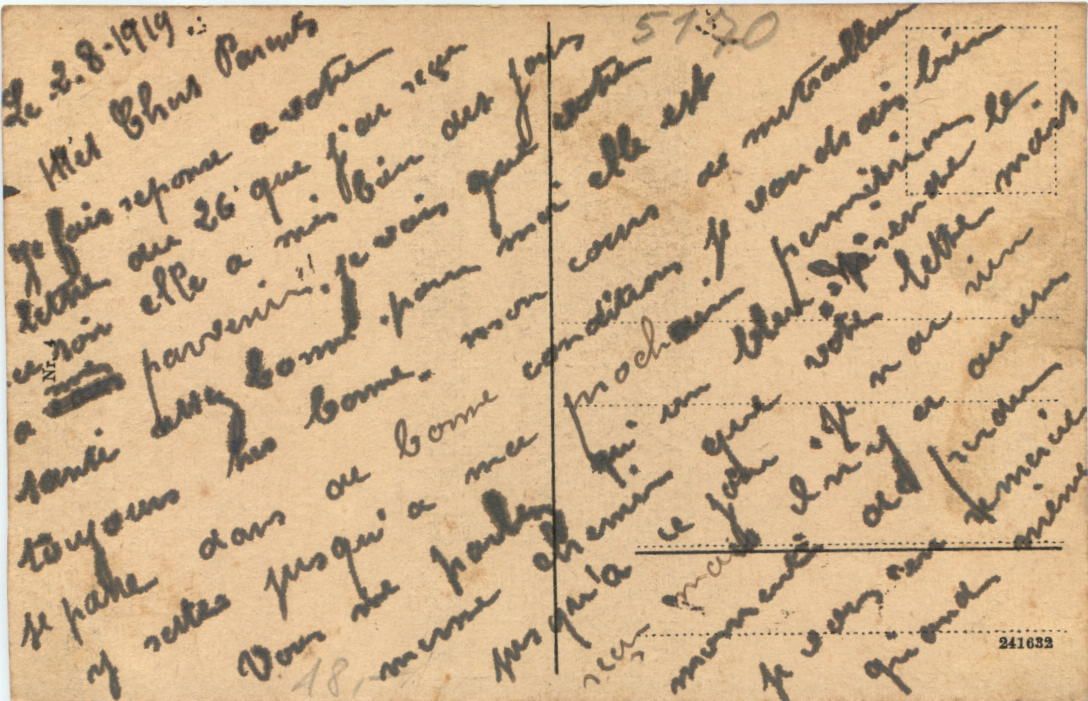 5170
Le 2-8-1919
Mes Chers Parents
Je fais reponse a votre
lettre du 26 que j'ai reçu
ce soir elle a mis bien des jours
a me parvenir. je vois que votre
santé est bonne. pour moi elle est
toujours tres bonne. mon cours de mitrailleur
se passe dans de bonne conditions je voudrais bien
y rester jusqu'a ma prochaine permission
Vous me parlez qu'un bleu le
meme chemin que votre lettre mais
jusqu'a ce jour je n'ai rien
reçu mais il n'y a aucun
de perdu
je vous en remercie
quand même
Nr.
18,-
241632